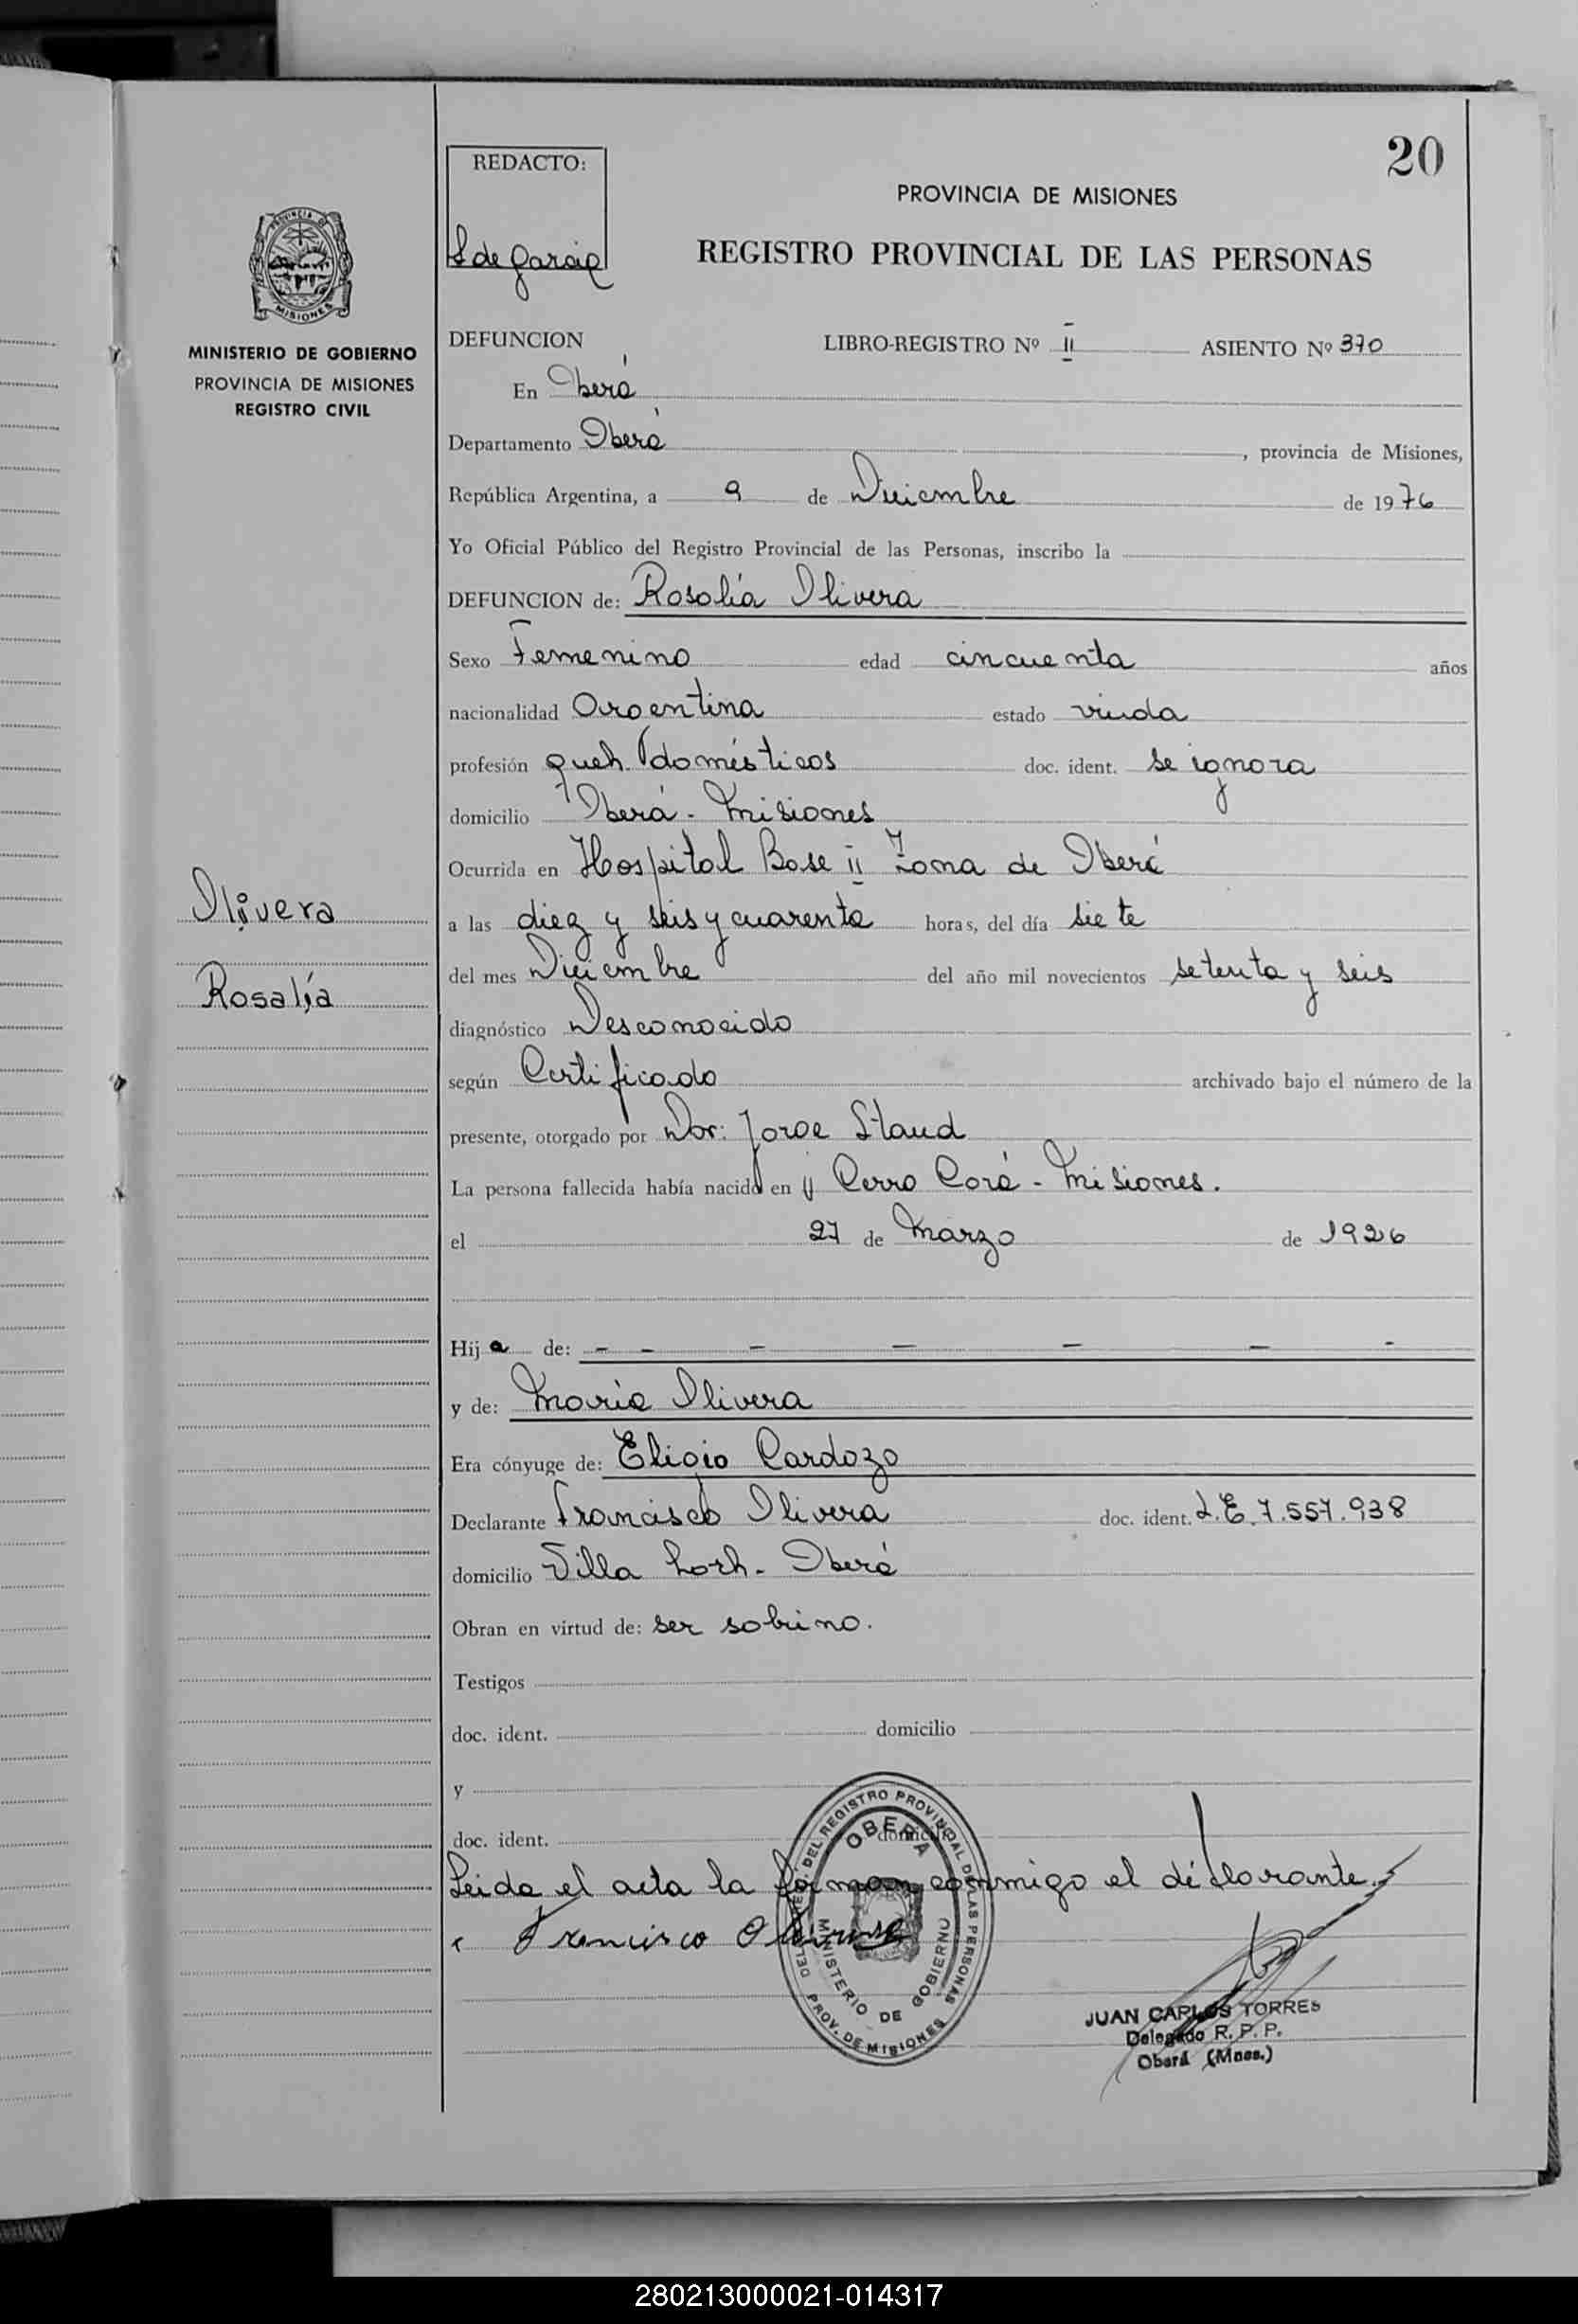 20
REDACTO:
S de Garcia
PROVINCIA DE MISIONES
REGISTRO PROVINCIAL DE LAS PERSONAS
PROVINCIA DE
MISIONES
MINISTERIO DE GOBIERNO
PROVINCIA DE MISIONES
REGISTRO CIVIL
DEFUNCION LIBRO-REGISTRO Nº II ASIENTO Nº 370
En Oberá
Departamento Oberá, provincia de Misiones,
República Argentina, a 9 de Diciembre de 1976
Yo Oficial Público del Registro Provincial de las Personas, inscribo la
DEFUNCION de: Rosalía Olivera
Sexo Femenino edad cincuenta años
nacionalidad Argentina estado viuda
profesión queh. domésticos doc. ident. se ignora
domicilio Oberá - Misiones
Ocurrida en Hospital Base II Zona de Oberá
Olivera
a las diez y seis y cuarenta horas, del día siete
del mes Diciembre del año mil novecientos setenta y seis
Rosalía
diagnóstico Desconocido
según Certificado archivado bajo el número de la
presente, otorgado por Dor: Jorge Staud
La persona fallecida había nacido en Cerro Corá - Misiones.
el 27 de Marzo de 1926
Hija de: - - - - - - -
y de: María Olivera
Era cónyuge de: Eligio Cardozo
Declarante Francisco Olivera doc. ident. L.E. 7.557.938
domicilio Villa Loch - Oberá
Obran en virtud de: ser sobrino.
Testigos
doc. ident. domicilio
y
doc. ident. domicilio
Leida el acta la forman conmigo el declarante.
Francisco Olivera
DEL REGISTRO PROVINCIAL DE LAS PERSONAS
OBERA
MINISTERIO DE GOBIERNO
PROV. DE MISIONES
JUAN CARLOS TORRES
Delegado R. P. P.
Oberá (Mnes.)
280213000021-014317